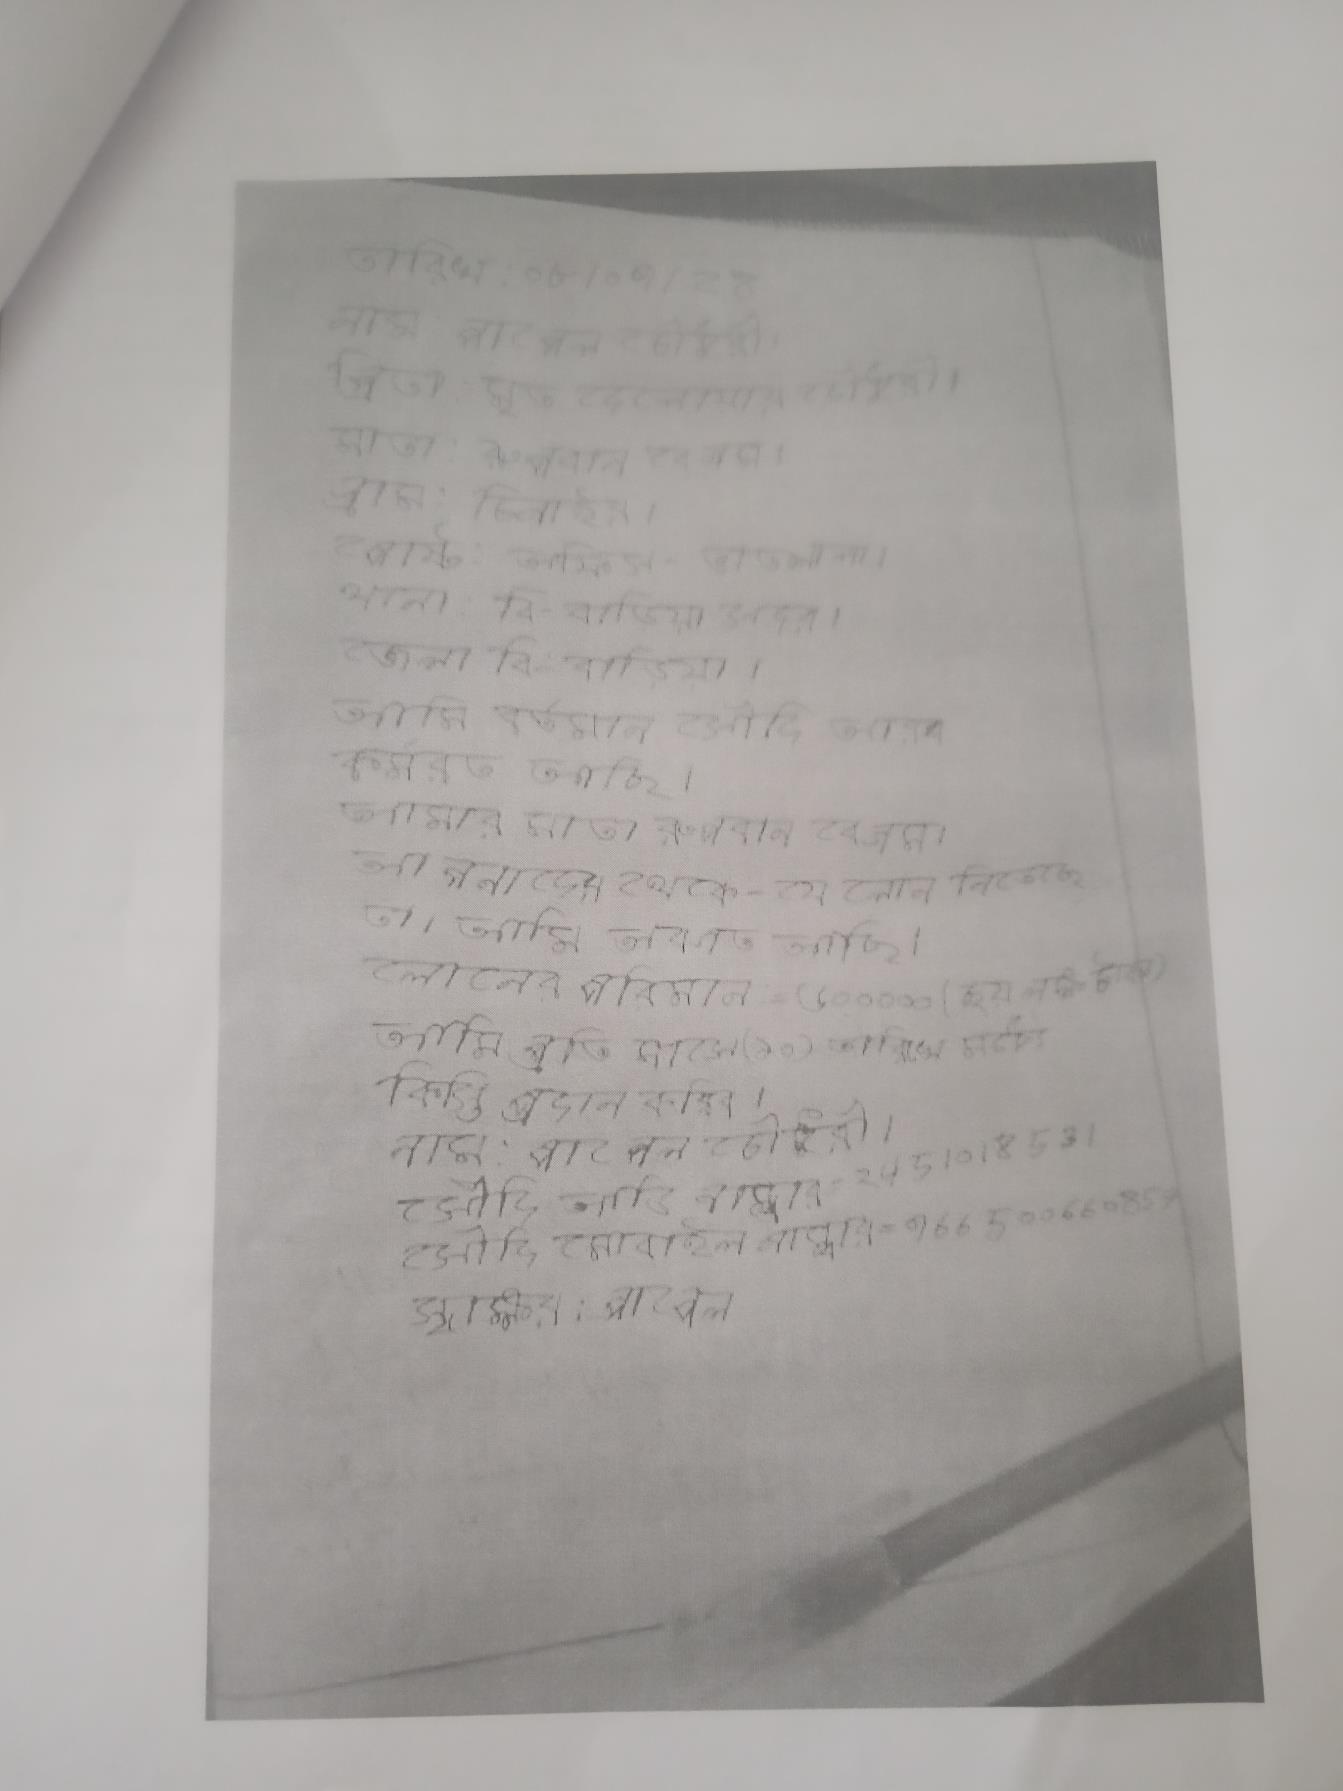 তারিখ: ০৮/০৭/২৪
নাম: পাবেল চৌধুরী।
পিতা: মৃত দেলোয়ার চৌধুরী।
মাতা: রুপবান বেগম।
গ্রাম: চিনাইর।
পোষ্ট: অফিস-
থানা: বি-বাড়িয়া সদর।
জেলা বি-বাড়িয়া।
আমি বর্তমান সৌদি আরব
কর্মরত আছি।
আমার মাতা রুপবান বেগম।
আপনাদের থেকে-যে লোন নিতেছে
তা। আমি অবগত আছি।
লোনের পরিমান = ৬০০০০০ (ছয় লক্ষ টাকা)
আমি প্রতি মাসে (১০) তারিখ মধ্যে
কিস্তি প্রদান করিব।
নাম: পাবেল চৌধুরী।
সৌদি আডি নাম্বার = 2451018531
সৌদি মোবাইল নাম্বার = 966500660857
স্বাক্ষর: পাবেল